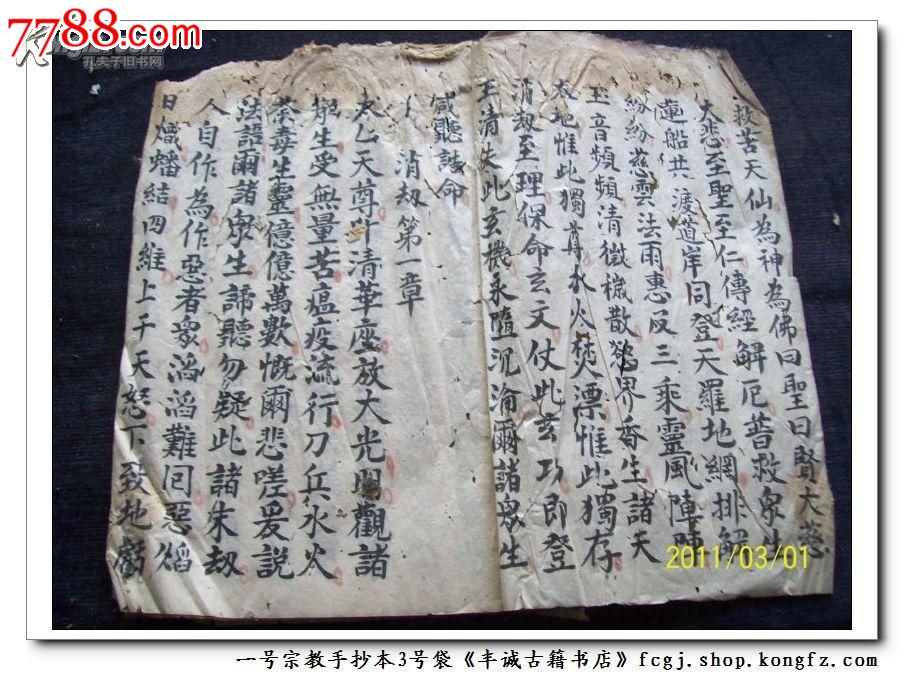 7788.com
孔夫子旧书网
救苦天仙為神為佛曰聖曰賢大慈
大悲至聖至仁傳經解厄普救眾生
蓮船共渡道岸同登天羅地網排解
紛紛慈雲法雨惠及三乘靈風陣陣
玉音頻頻清微穢散慾界香生諸天
大地惟此獨尊水火焚漂惟此獨存
消劫至理保命玄文仗此玄功即登
玉清失此玄機永墮沉淪爾諸眾生
咸聽誥命
消劫第一章
太乙天尊升清華座放大光明觀諸
眾生受無量苦瘟疫流行刀兵水火
荼毒生靈億億萬數慨爾悲嗟爰説
法語爾諸眾生諦聽勿疑此諸朱劫
人自作為作惡者眾滔滔難回惡焰
日熾蟠結四維上干天怒下致地
2011/03/01
一号宗教手抄本3号袋《丰诚古籍书店》fcgj.shop.kongfz.com